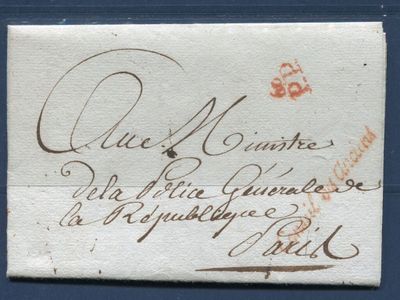 Au Ministre
De la Police Générale de
la République
Paris
P.P.